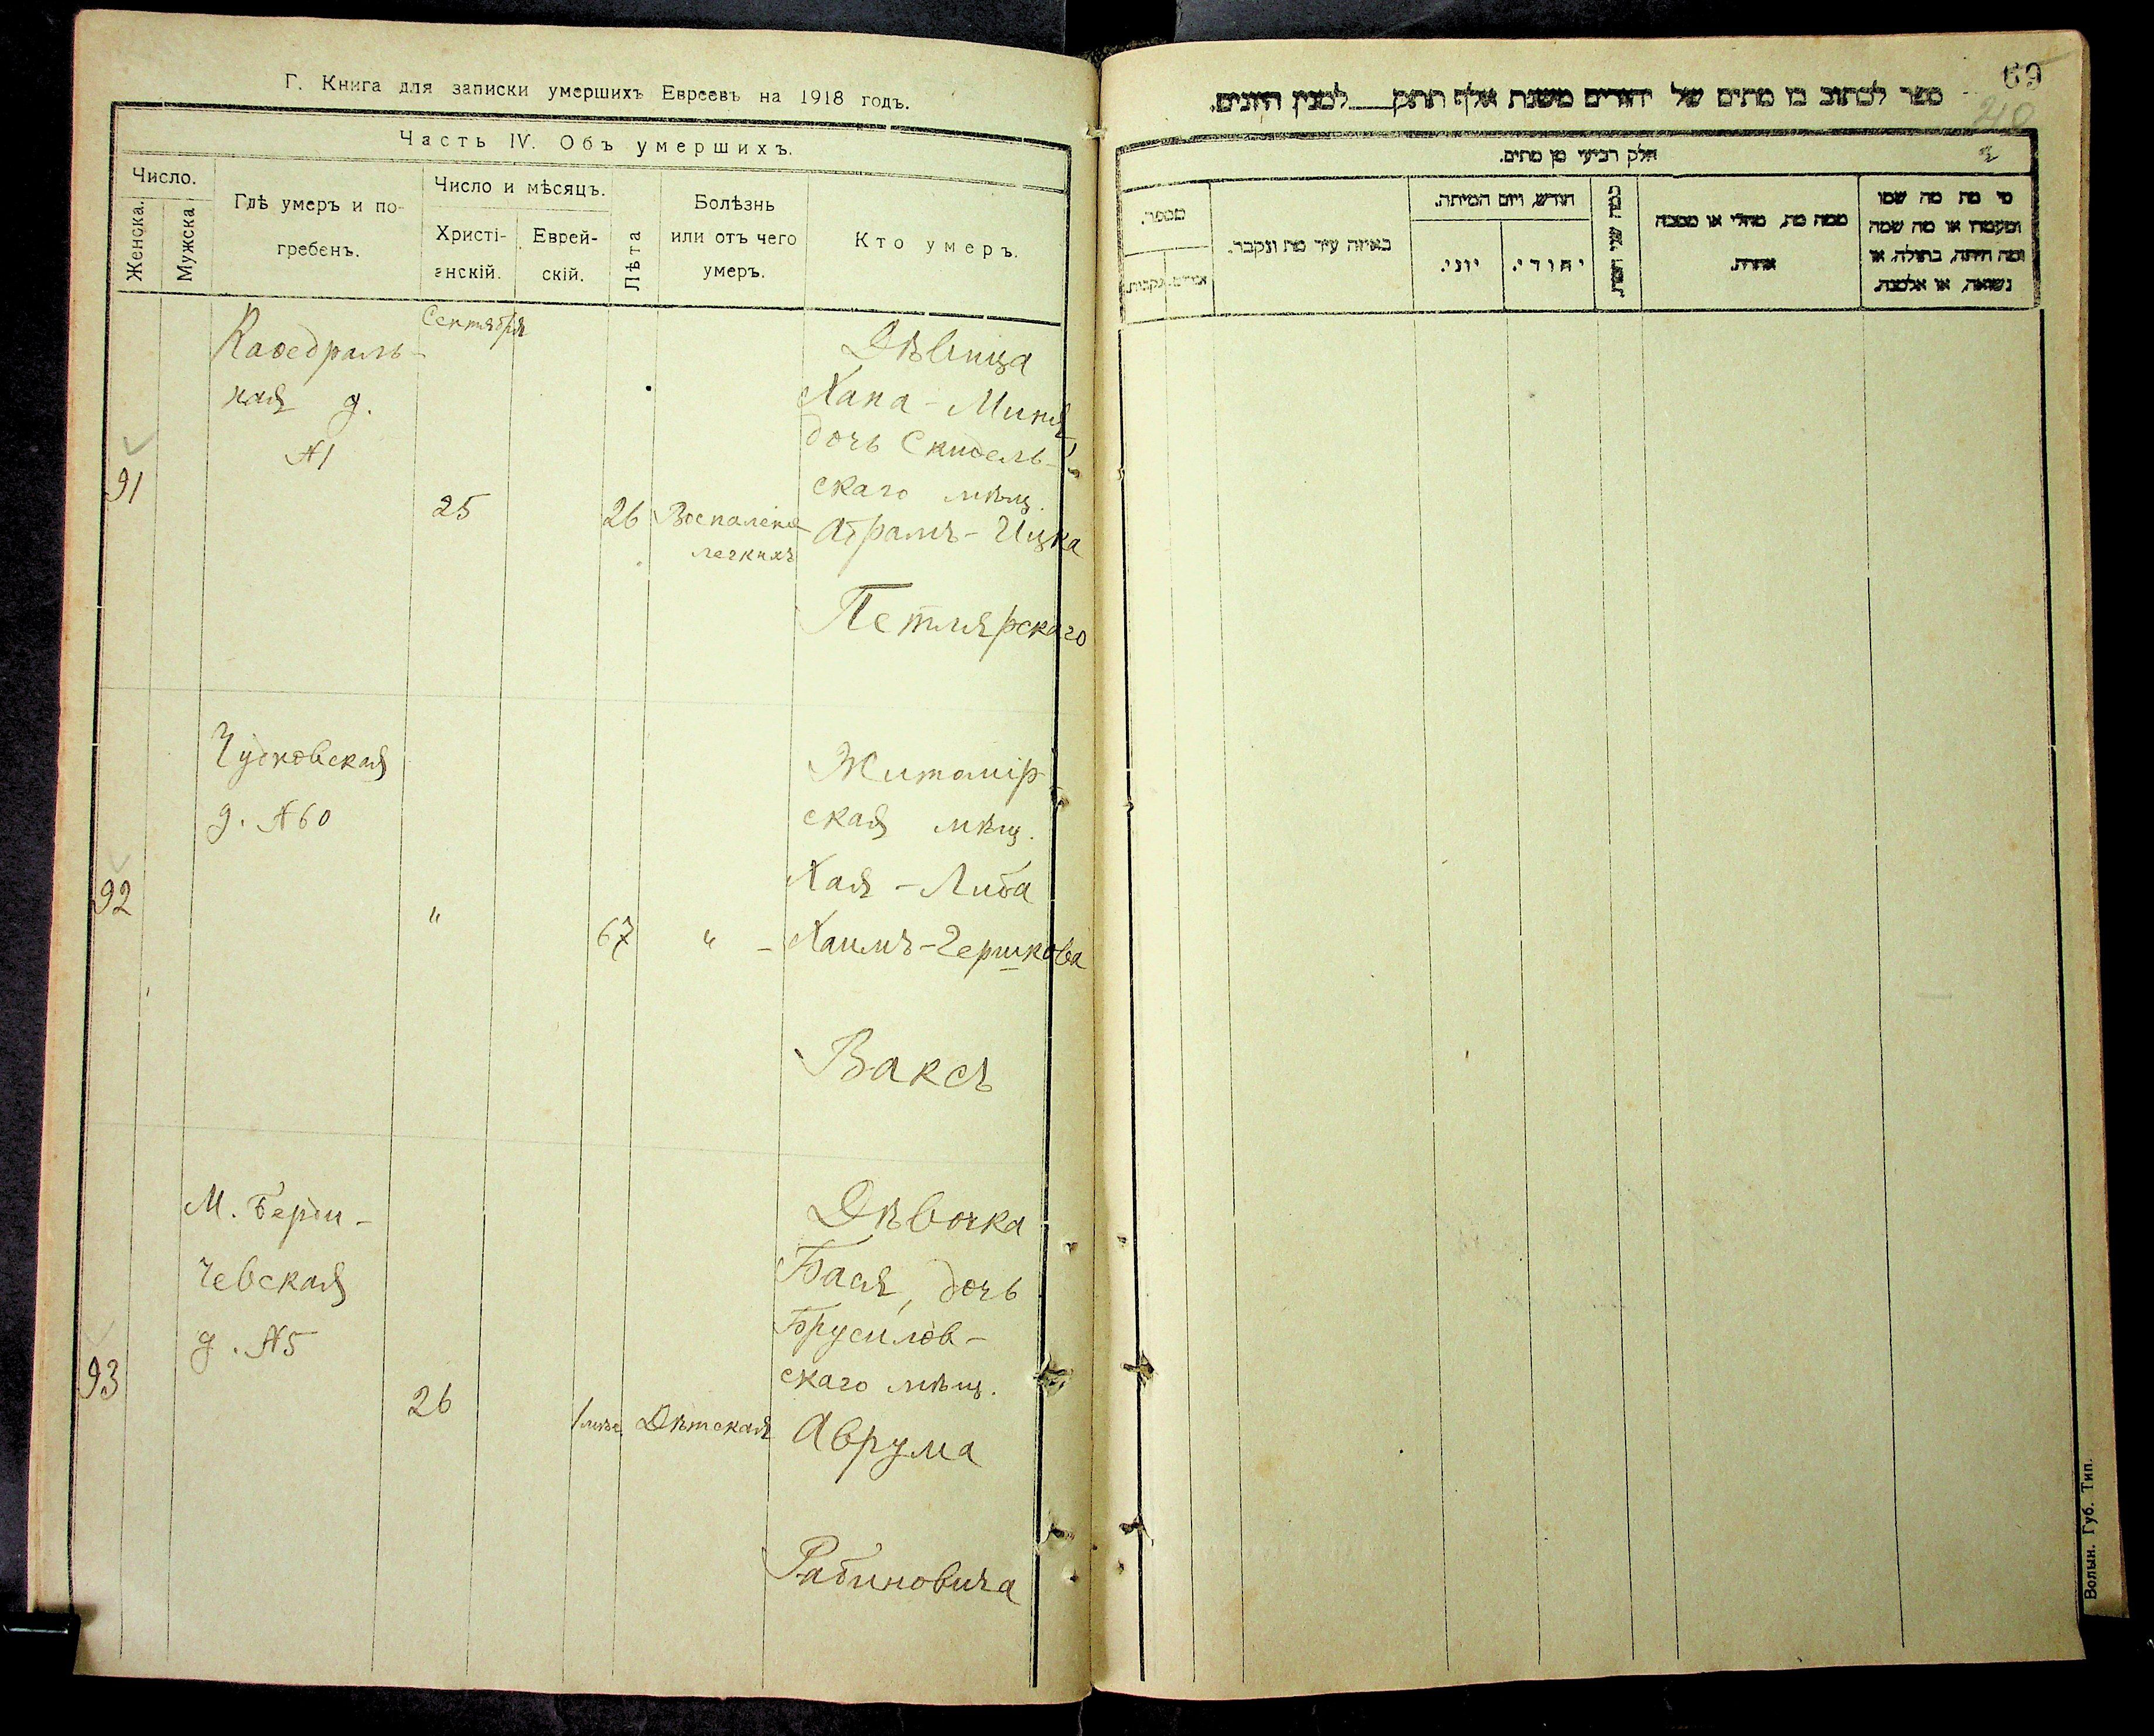 Г. Книга для записки умершихъ Евреевъ на 1918 годъ.
Часть IV. Объ умершихъ.
Число.
Женска.
Мужска
Гдѣ умеръ и по-
гребенъ.
Число и мѣсяцъ.
Христі-
анскій.
Еврей-
скій.
Лѣта
Болѣзнь
или отъ чего
умеръ.
Кто умеръ.
91
Каѳедраль-
ная д.
№1
Сентября
25
26
Воспаленіе
легкихъ
Дѣвица
Хана-Миня
дочь Скидель-
скаго мѣщ.
Абрамъ-Ицка
Петлярскаго
92
Чудновская
д. №60
"
67
" -
Житомір-
ская мѣщ.
Хая-Либа
Хаимъ-Гершкова
Ваксъ
93
М. Берди-
чевская
д. №5
26
1 мѣс.
Дѣтская
Дѣвочка
Бася, дочь
Брусилов-
скаго мѣщ.
Аврума
Рабиновича
69
ספר לכתוב בו מתים של יהודים משנת אלף תתקן לסנין היונים.
חלק רביעי מן מתים.
מספר.
נקבות.
באיזה עיר מת ונקבר.
חודש ויום המיתה.
יוני.
יהודי.
ממה מת, מחלי או מסבה
אחרת.
מי מת מה שמו
ומעמדו או מה שמה
ומה היתה, בתולה, או
נשואה, או אלמנה.
Волын. Губ. Тип.